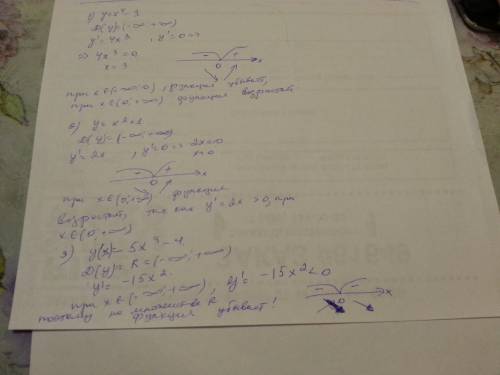 1) y=x⁴-3
D(y)=(-∞;+∞)
y'=4x³ , y'=0=>
=> 4x³=0
x=3
- + 0 x
при x∈(-∞;0), функция убывает,
при x∈(0;+∞) функция возрастает
y=x²+1
D(y)=(-∞;+∞)
y'=2x , y'=0 => 2x=0
x=0
- + 0 x
при x∈(0;+∞) функция
возрастает, так как y'=2x>0, при
x∈(0;+∞)
3) y(x)=5x³-4
D(y)=R=(-∞;+∞)
y'=-15x²
при x∈(-∞;+∞), y'=-15x²<0
- - 0 x
поэтому на множестве R
функция убывает!